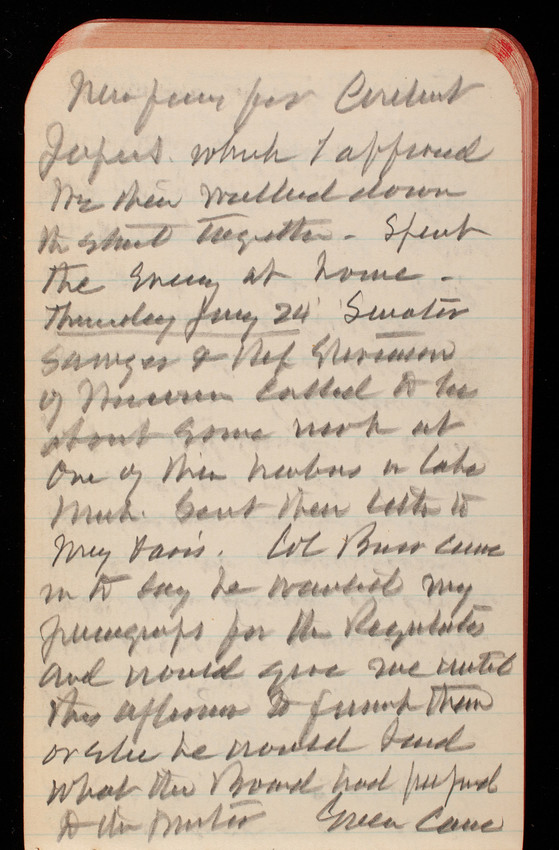 for
which I approved
We then walked down
the street together. Spent
the Eveng at home.
Thursday Jany 24 Senator
Sawyer & Rep Stevenson
of called to see
about some work at
One of their harbors on Lake
Mich. Sent their letter to
Maj Davis. Col came
in to say he wanted my
paragraphs for the Regulations
and would give me until
this afternoon to furnish them
or else he would send
what the Board had prepared
to the Printer Green came